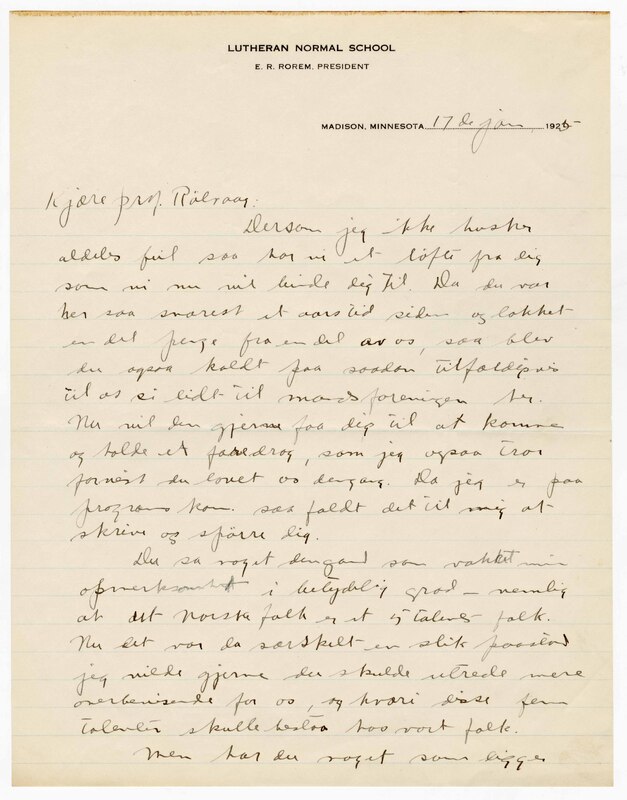 LUTHERAN NORMAL SCHOOL
E. R. ROREM, PRESIDENT
MADISON, MINNESOTA 17 de jan. 1925
Kjære prof. Rölvaag:
Dersom jeg ikke husker
aldeles feil saa har vi et löfte fra dig
som vi nu vil binde dig til. Da du var
her saa snarest et aarstid siden og lokket
en del penge fra en del av os, saa blev
du ogsaa kaldt paa saadan tilfældigvis
til at si lidt til mandsforeningen her.
Nu vil den gjerne faa dig til at komme
og holde et foredrag, som jeg ogsaa tror
fornest du lovet os dengang. Da jeg er paa
program kom. saa faldt det til mig at
skrive og spörre dig.
Du sa noget dengang som vakket min
opmerksomhet i betydelig grad – nemlig
at det norske folk er et 5 talents folk.
Nu det var da særskilt en slik paastand
jeg vilde gjerne du skulde utrede mere
overbevisende for os, og hvori disse fem
talenter skulle bestaa hos vort folk.
Men har du noget som ligger